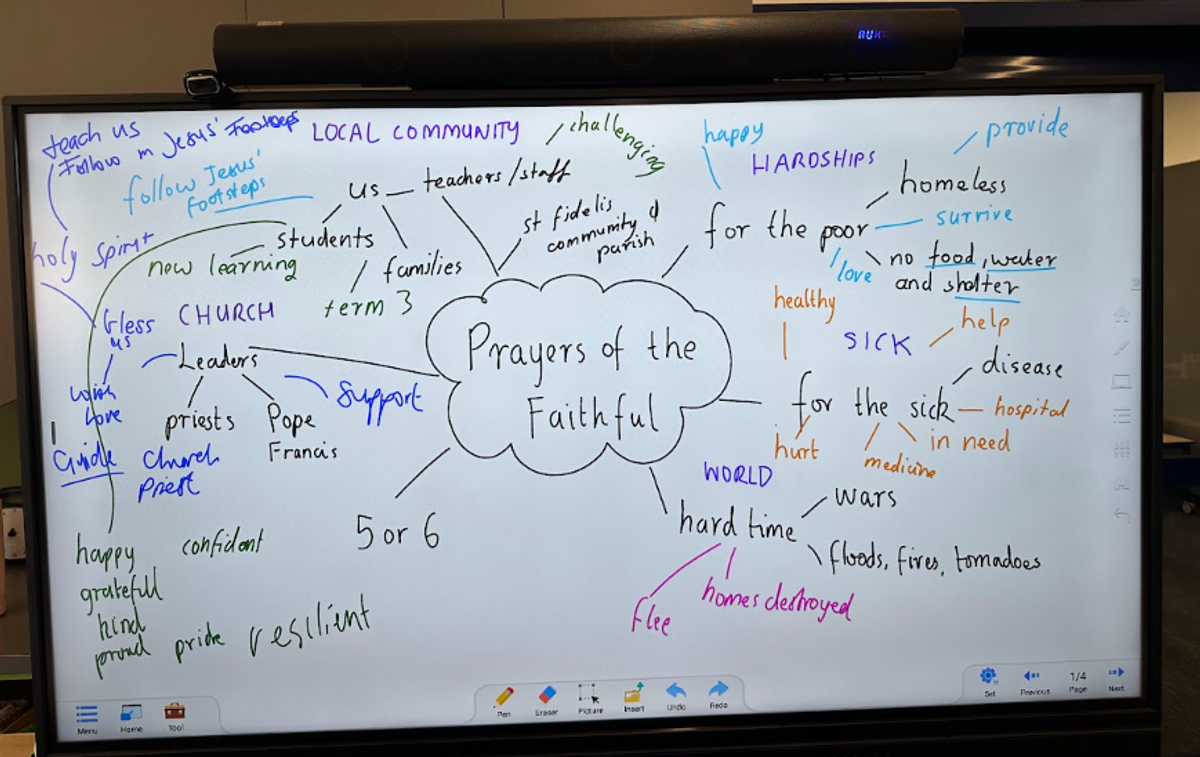 teach us
Follow in Jesus' Footsteps
LOCAL COMMUNITY
challenging
follow Jesus'
footsteps
us
teachers/staff
st fidelis
community &
parish
holy Spirit
students
families
new learning
term 3
happy
HARDSHIPS
provide
homeless
for the poor
survive
love
no food, water
and shelter
CHURCH
bless
us
Leaders
with
love
priests
Pope
Francis
Support
Guide
Church
Priest
Prayers of the
Faithful
healthy
SICK
help
disease
for the sick
hospital
hurt
medicine
in need
WORLD
hard time
wars
floods, fires, tornadoes
flee
homes destroyed
5 or 6
happy
confident
gratefull
kind
proud
pride
resilient
AUX
Menu
Home
Tool
Pen
Eraser
Picture
Insert
Undo
Redo
Set
Previous
1/4
Page
Next